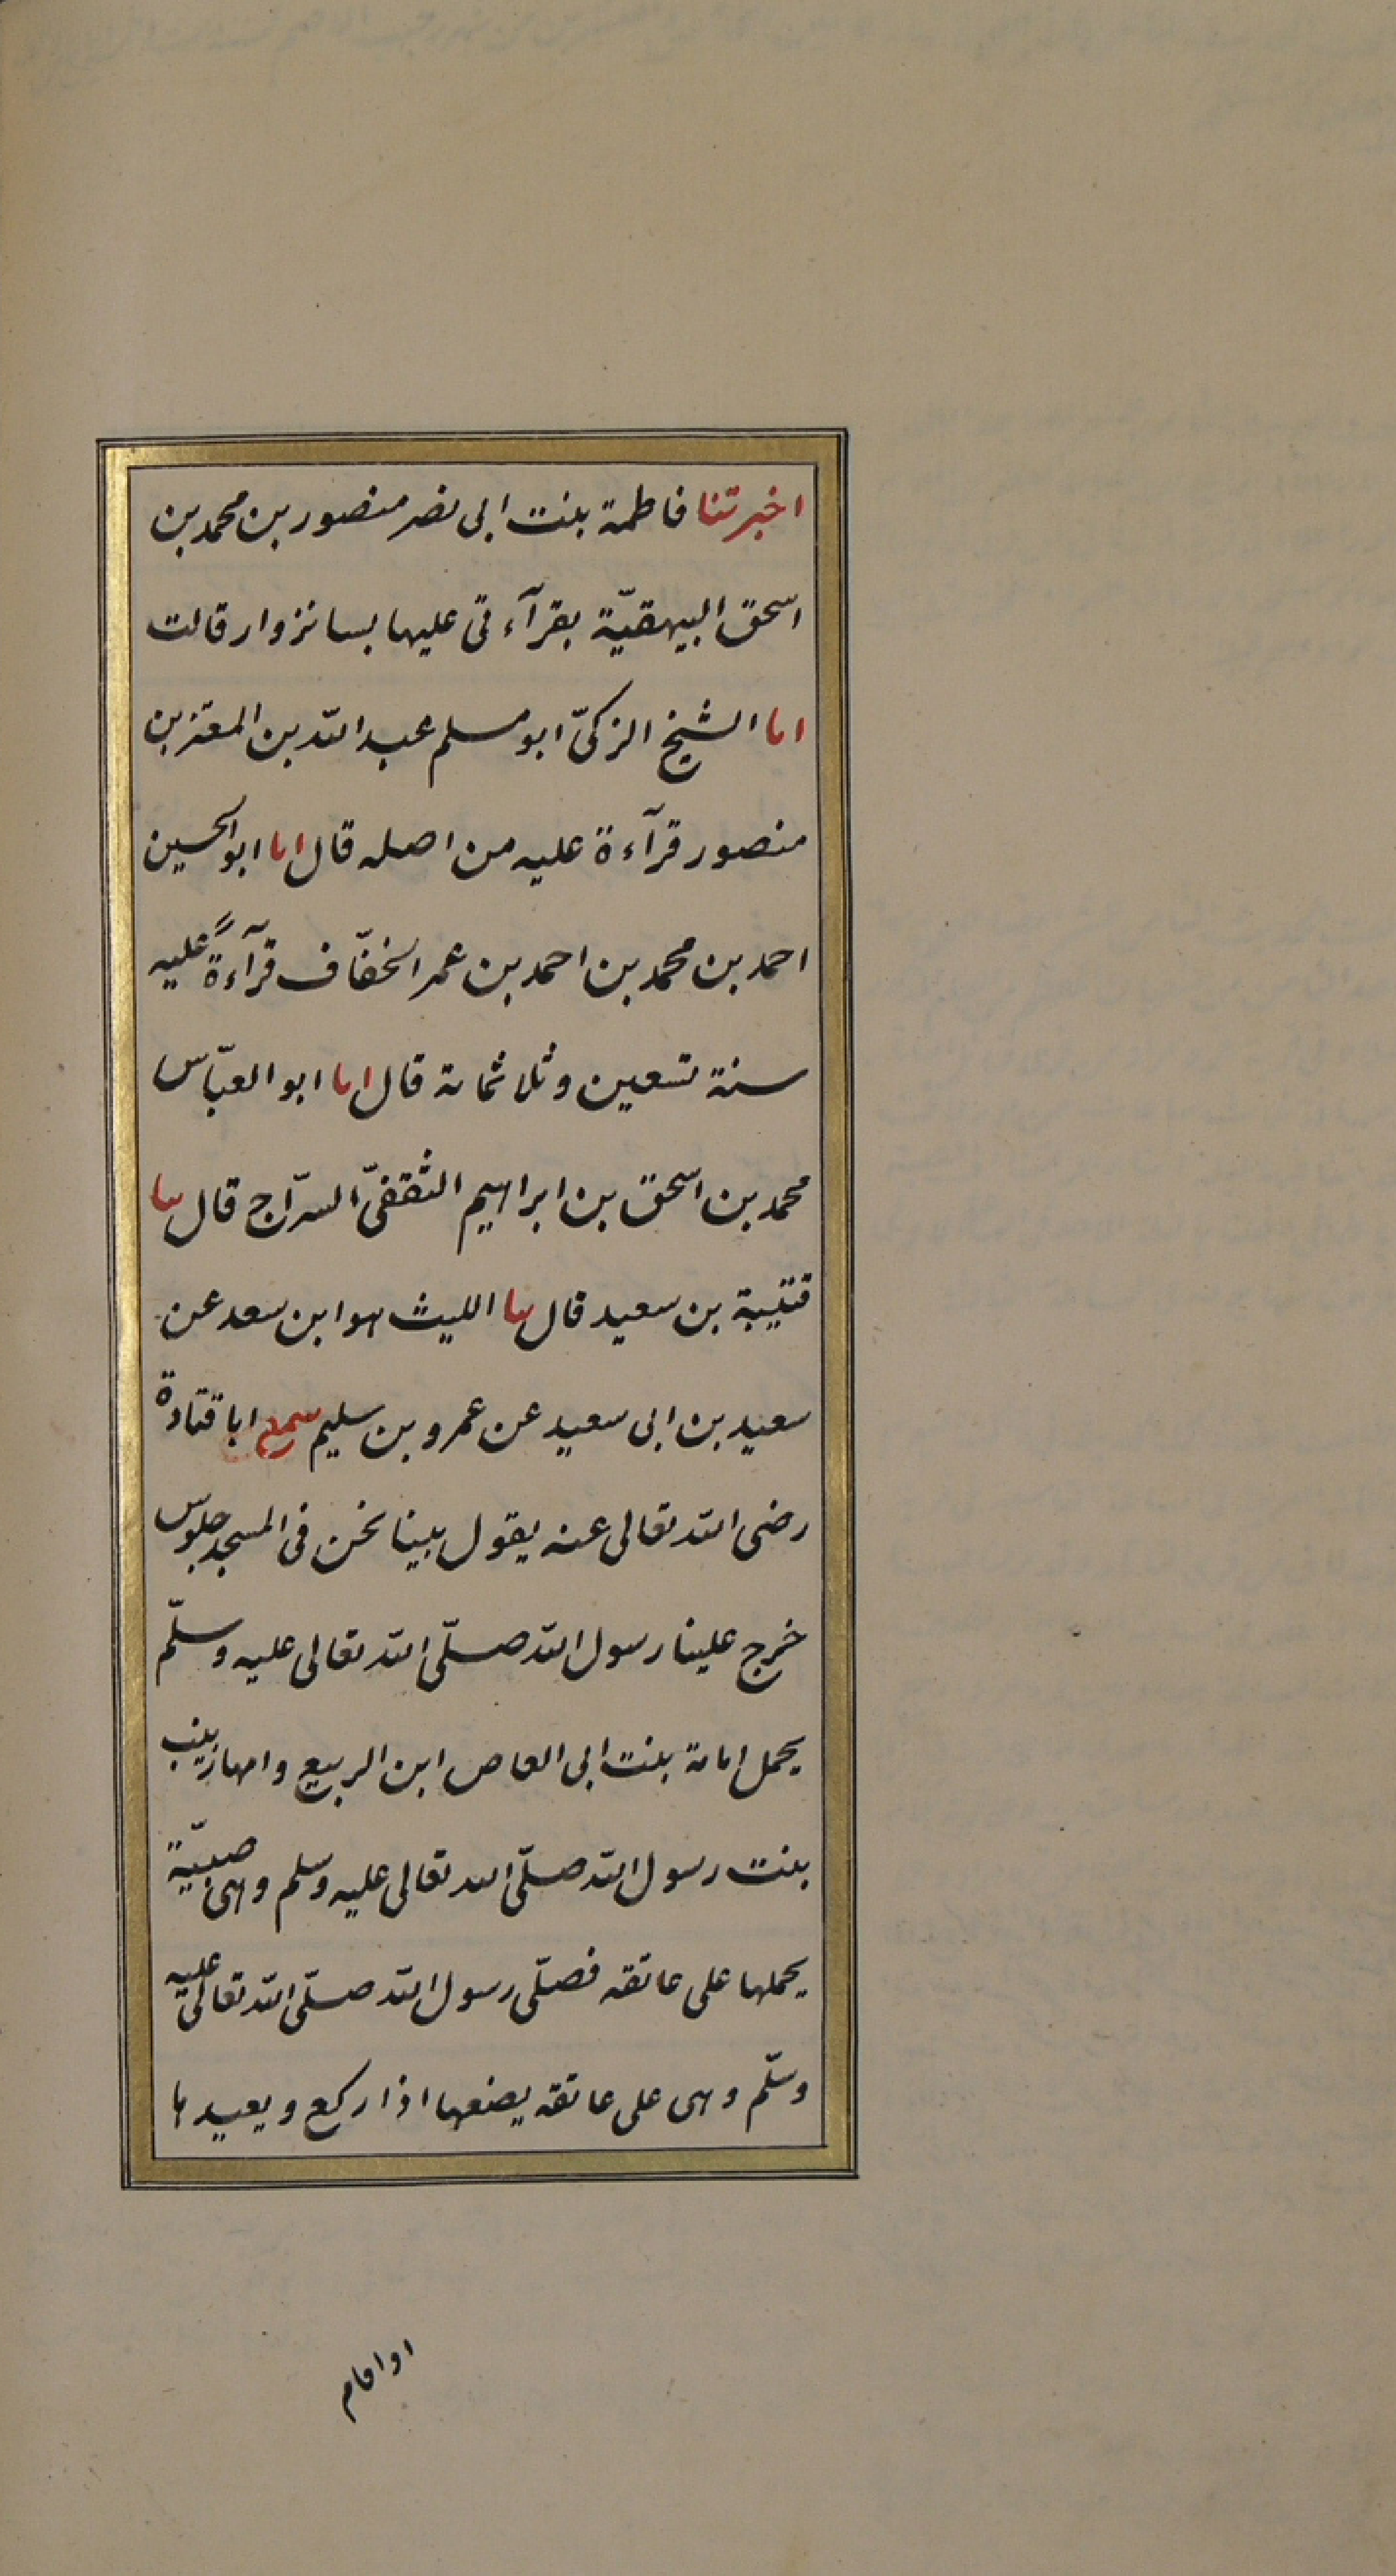 اخبرتنا فاطمة بنت ابى نصر منصور بن محمد بن
اسحق البيهقيّة بقرآءتى عليها بسانزوار قالت
انا الشيخ الزكىّ ابو مسلم عبد الله بن المعتز بن
منصور قرآءة عليه من اصله قال انا ابو الحسين
احمد بن محمد بن احمد بن عمر الخفّاف قرآءةً عليه
سنة تسعين وثلاثمائة قال انا ابو العبّاس
محمد بن اسحق بن ابراهيم الثقفىّ السرّاج قال ثنا
قتيبة بن سعيد قال ثنا الليث هو ابن سعد عن
سعيد بن ابى سعيد عن عمرو بن سليم سمع ابا قتادة
رضى الله تعالى عنه يقول بينا نحن فى المسجد جلوس
خرج علينا رسول الله صلّى الله تعالى عليه وسلّم
يحمل امامة بنت ابى العاص ابن الربيع وامها زينب
بنت رسول الله صلّى الله تعالى عليه وسلم وهى صبيّة
يحملها على عاتقه فصلّى رسول الله صلّى الله تعالى عليه
وسلّم وهى على عاتقه يضعها اذا ركع ويعيدها
اذا قام